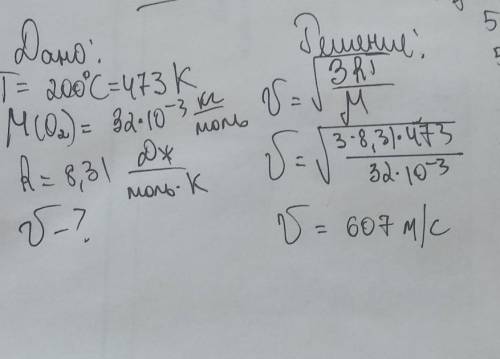 Дано:
T = 200°C = 473 K
M(O₂) = 32·10⁻³ кг/моль
R = 8,31 Дж/моль·K
υ - ?
Решение:
υ = √(3RT/M)
υ = √(3·8,31·473/32·10⁻³)
υ = 607 м/с
5